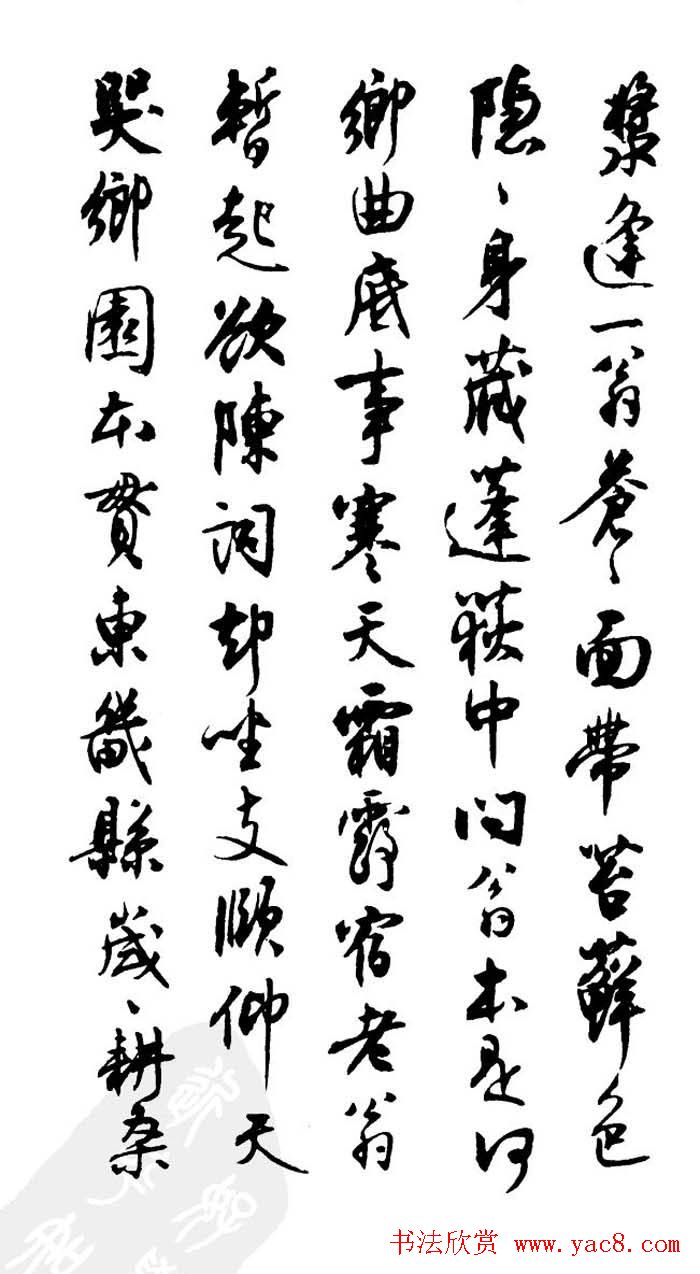 漿逢一翁蒼〻面帶苔蘚色
隱〻身藏蓬荻中問翁本是何
鄉曲底事寒天霜露宿老翁
暫起欲陳詞却坐支頤仰天
哭鄉園本貫東畿縣歲〻耕桑
书法欣赏 www.yac8.com